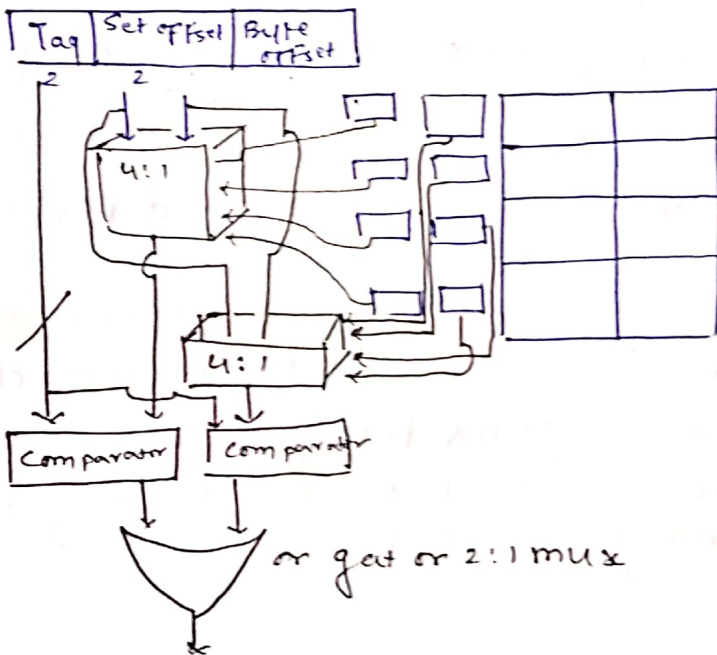 Tag Set offset Byte offset
2 2
4:1
4:1
Comparator Comparator
or gat or 2:1 mux